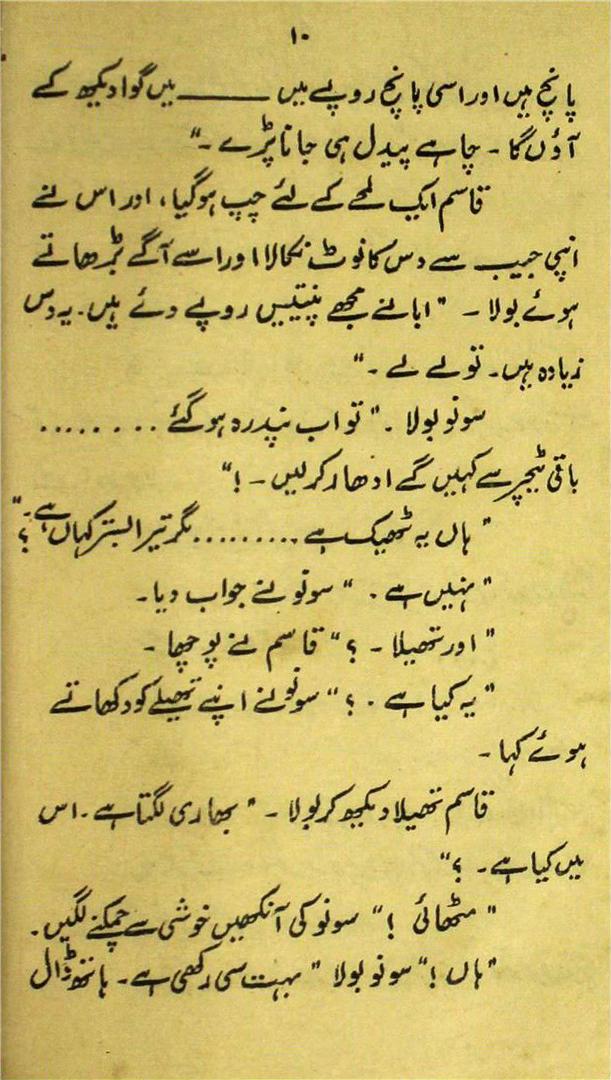 ۱۰
پانچ ہیں اور اسی پانچ روپے میں ——— میں گوا دیکھ کے
آؤں گا ۔ چاہے پیدل ہی جانا پڑے ۔"
قاسم ایک لمحے کے لئے چپ ہوگیا، اور اس نے
اپنی جیب سے دس کا نوٹ نکالا اور اسے آگے بڑھاتے
ہوئے بولا ۔ "ابا نے مجھے پنتیس روپے دئے ہیں۔ یہ دس
زیادہ ہیں۔ تو لے لے ۔"
سونو بولا ۔ "تو اب پندرہ ہو گئے ........
باقی ٹیچر سے کہیں گے ادھار کرلیں ۔ !"
"ہاں یہ ٹھیک ہے ......... مگر تیرا بستر کہاں ہے۔ ؟"
"نہیں ہے ۔" سونو نے جواب دیا۔
"اور تھیلا ۔ ؟" قاسم نے پوچھا ۔
"یہ کیا ہے ۔ ؟" سونو نے اپنے تھیلے کو دکھاتے
ہوئے کہا ۔
قاسم تھیلا دیکھ کر بولا ۔ "بھاری لگتا ہے ۔ اس
میں کیا ہے ۔ ؟"
"مٹھائی !" سونو کی آنکھیں خوشی سے چمکنے لگیں۔
"ہاں !" سونو بولا "بہت سی رکھی ہے ۔ ہاتھ ڈال